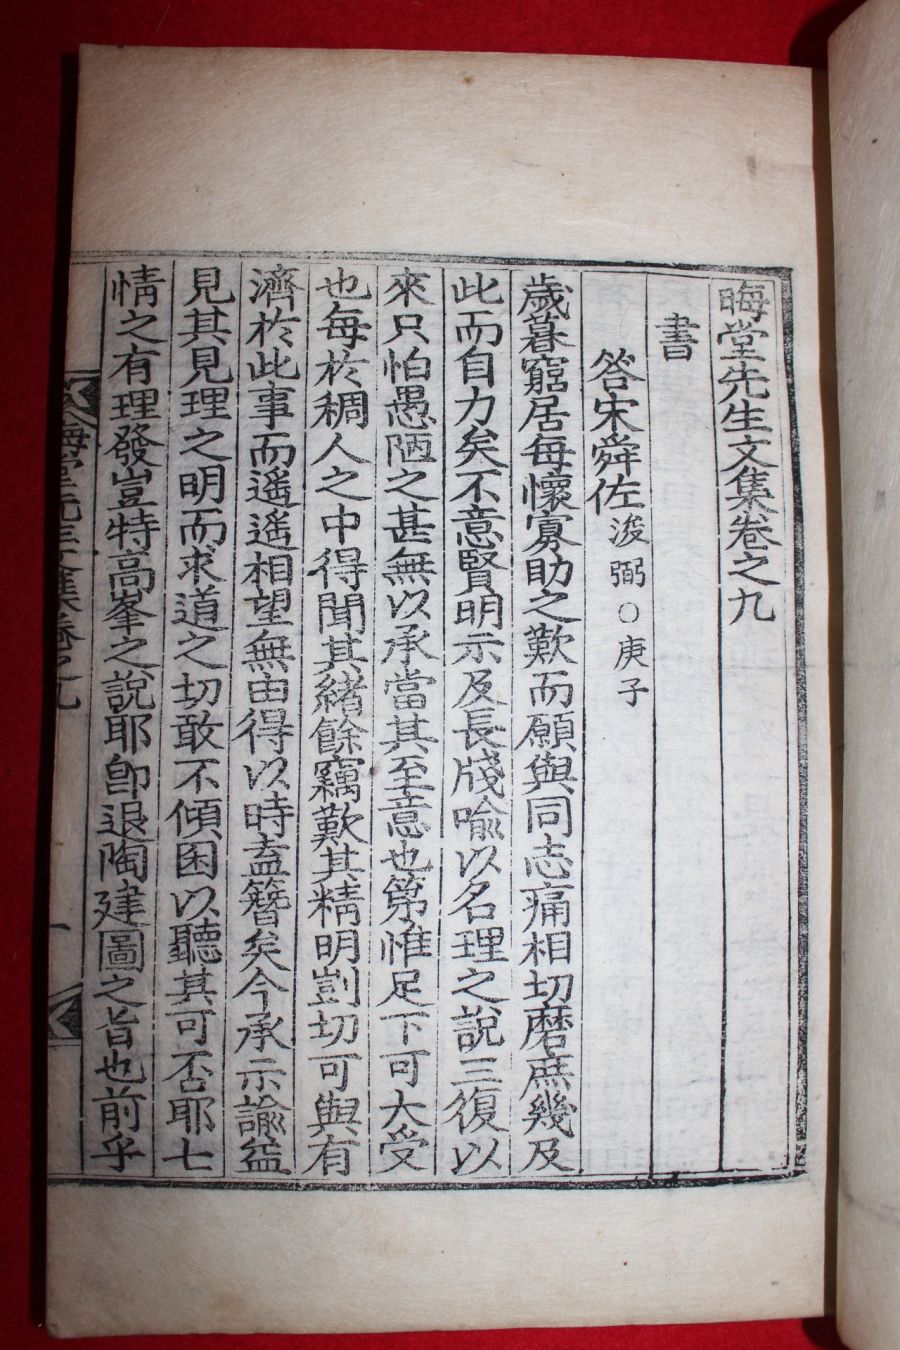 晦堂先生文集卷之九
書
答宋舜佐 浚弼○庚子
歲暮窮居每懷寡助之歎而願與同志痛相切磨庶幾及
此而自力矣不意賢明示及長牋喩以名理之說三復以
來只怕愚陋之甚無以承當其至意也第惟足下可大受
也每於稠人之中得聞其緖餘竊歎其精明剴切可與有
濟於此事而遙遙相望無由得以時盍簪矣今承示諭益
見其見理之明而求道之切敢不傾囷以聽其可否耶七
情之有理發豈特高峯之說耶卽退陶建圖之旨也前乎
晦堂先生文集卷之九 一